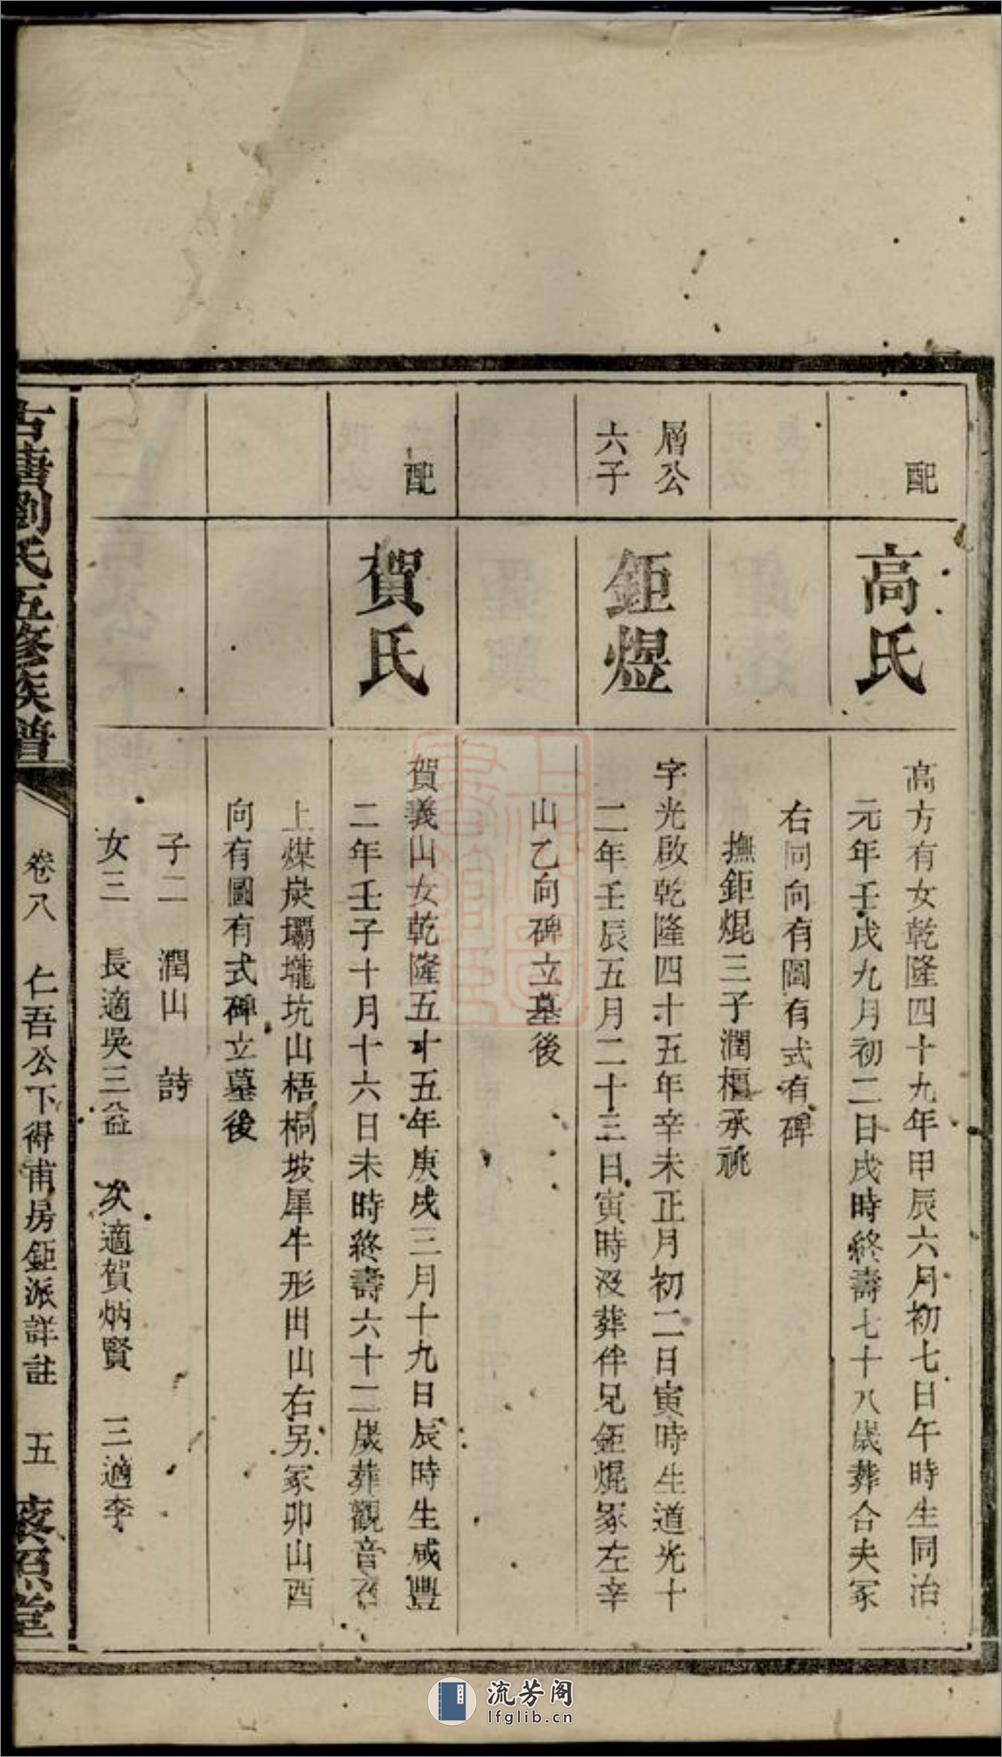 配
高氏
高方有女乾隆四十九年甲辰六月初七日午時生同治
元年壬戌九月初二日戌時終壽七十八歲葬合夫冢
右同向有圖有式有碑
撫鉅焜三子潤櫃承祧
層公
六子
鉅煜
字光啟乾隆四十五年辛未正月初二日寅時生道光十
二年壬辰五月二十三日寅時沒葬伴兄鉅焜冢左辛
山乙向碑立墓後
配
賀氏
賀義山女乾隆五十五年庚戌三月十九日辰時生咸豐
二年壬子十月十六日未時終壽六十二歲葬觀音召
上煤炭壩壠坑山梧桐坡犀牛形出山右另冢卯山酉
向有圖有式碑立墓後
子二 潤山 詩
女三 長適吳三益 次適賀炳賢 三適李
古塘劉氏五修族譜
卷八 仁吾公下得甫房鉅派詳註 五
藜照堂
上海圖書館藏
流芳阁
lfglib.cn